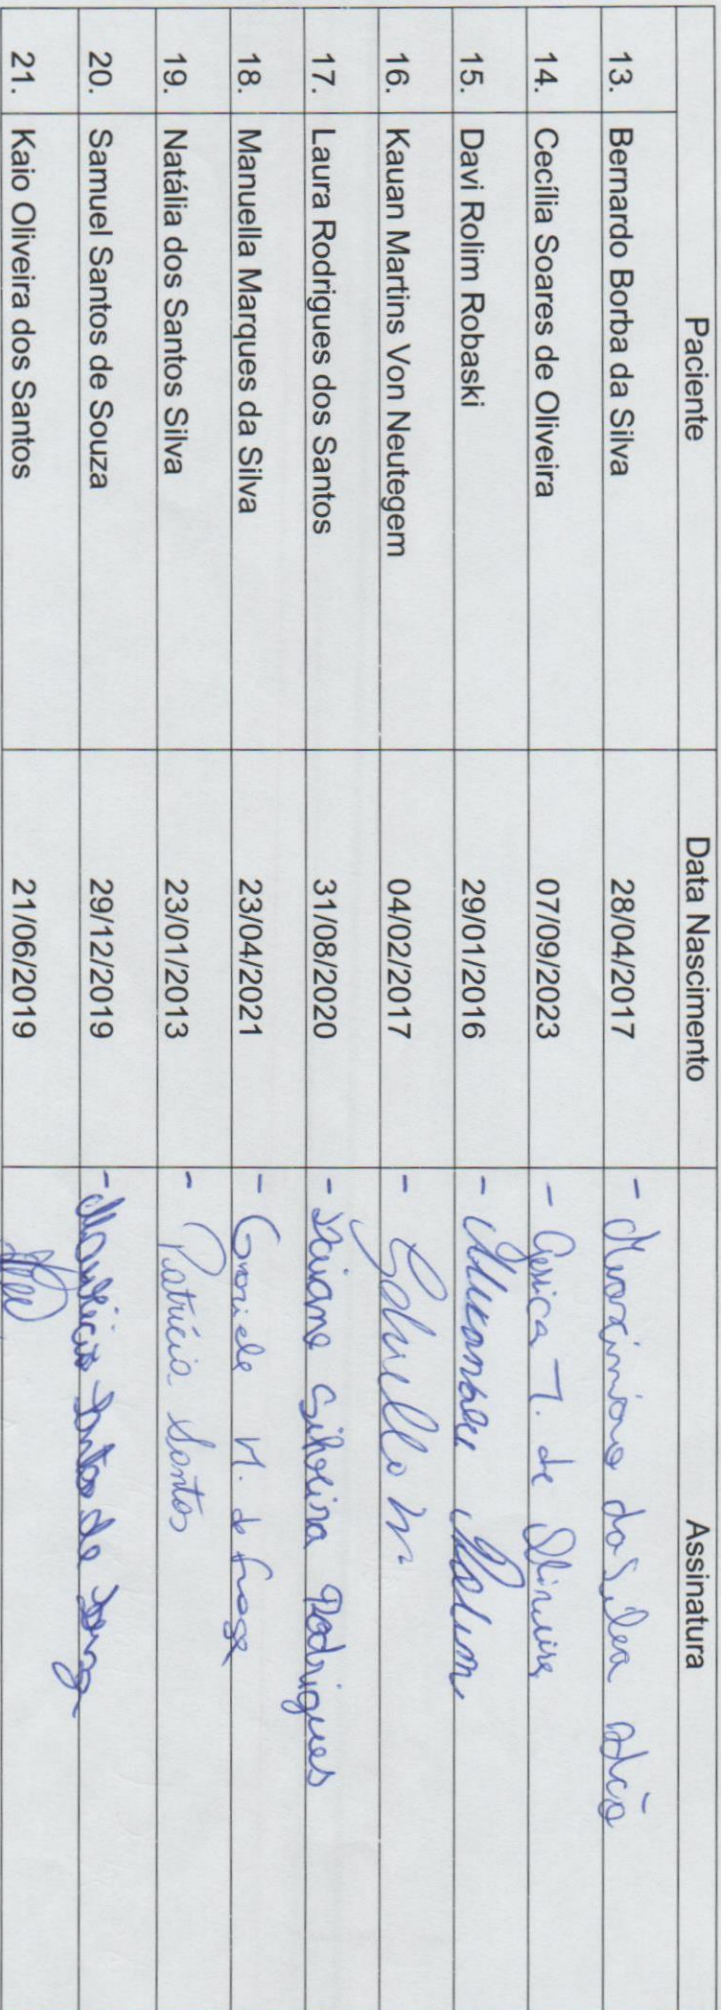 Paciente Data Nascimento Assinatura
13. Bernardo Borba da Silva 28/04/2017 - da Silva
14. Cecília Soares de Oliveira 07/09/2023 - Gesica T. de Oliveira
15. Davi Rolim Robaski 29/01/2016 - Rolim
16. Kauan Martins Von Neutegem 04/02/2017 -
17. Laura Rodrigues dos Santos 31/08/2020 - Daiane Silveira Rodrigues
18. Manuella Marques da Silva 23/04/2021 - M. de
19. Natália dos Santos Silva 23/01/2013 - Patrícia Santos
20. Samuel Santos de Souza 29/12/2019 - Santos de Souza
21. Kaio Oliveira dos Santos 21/06/2019